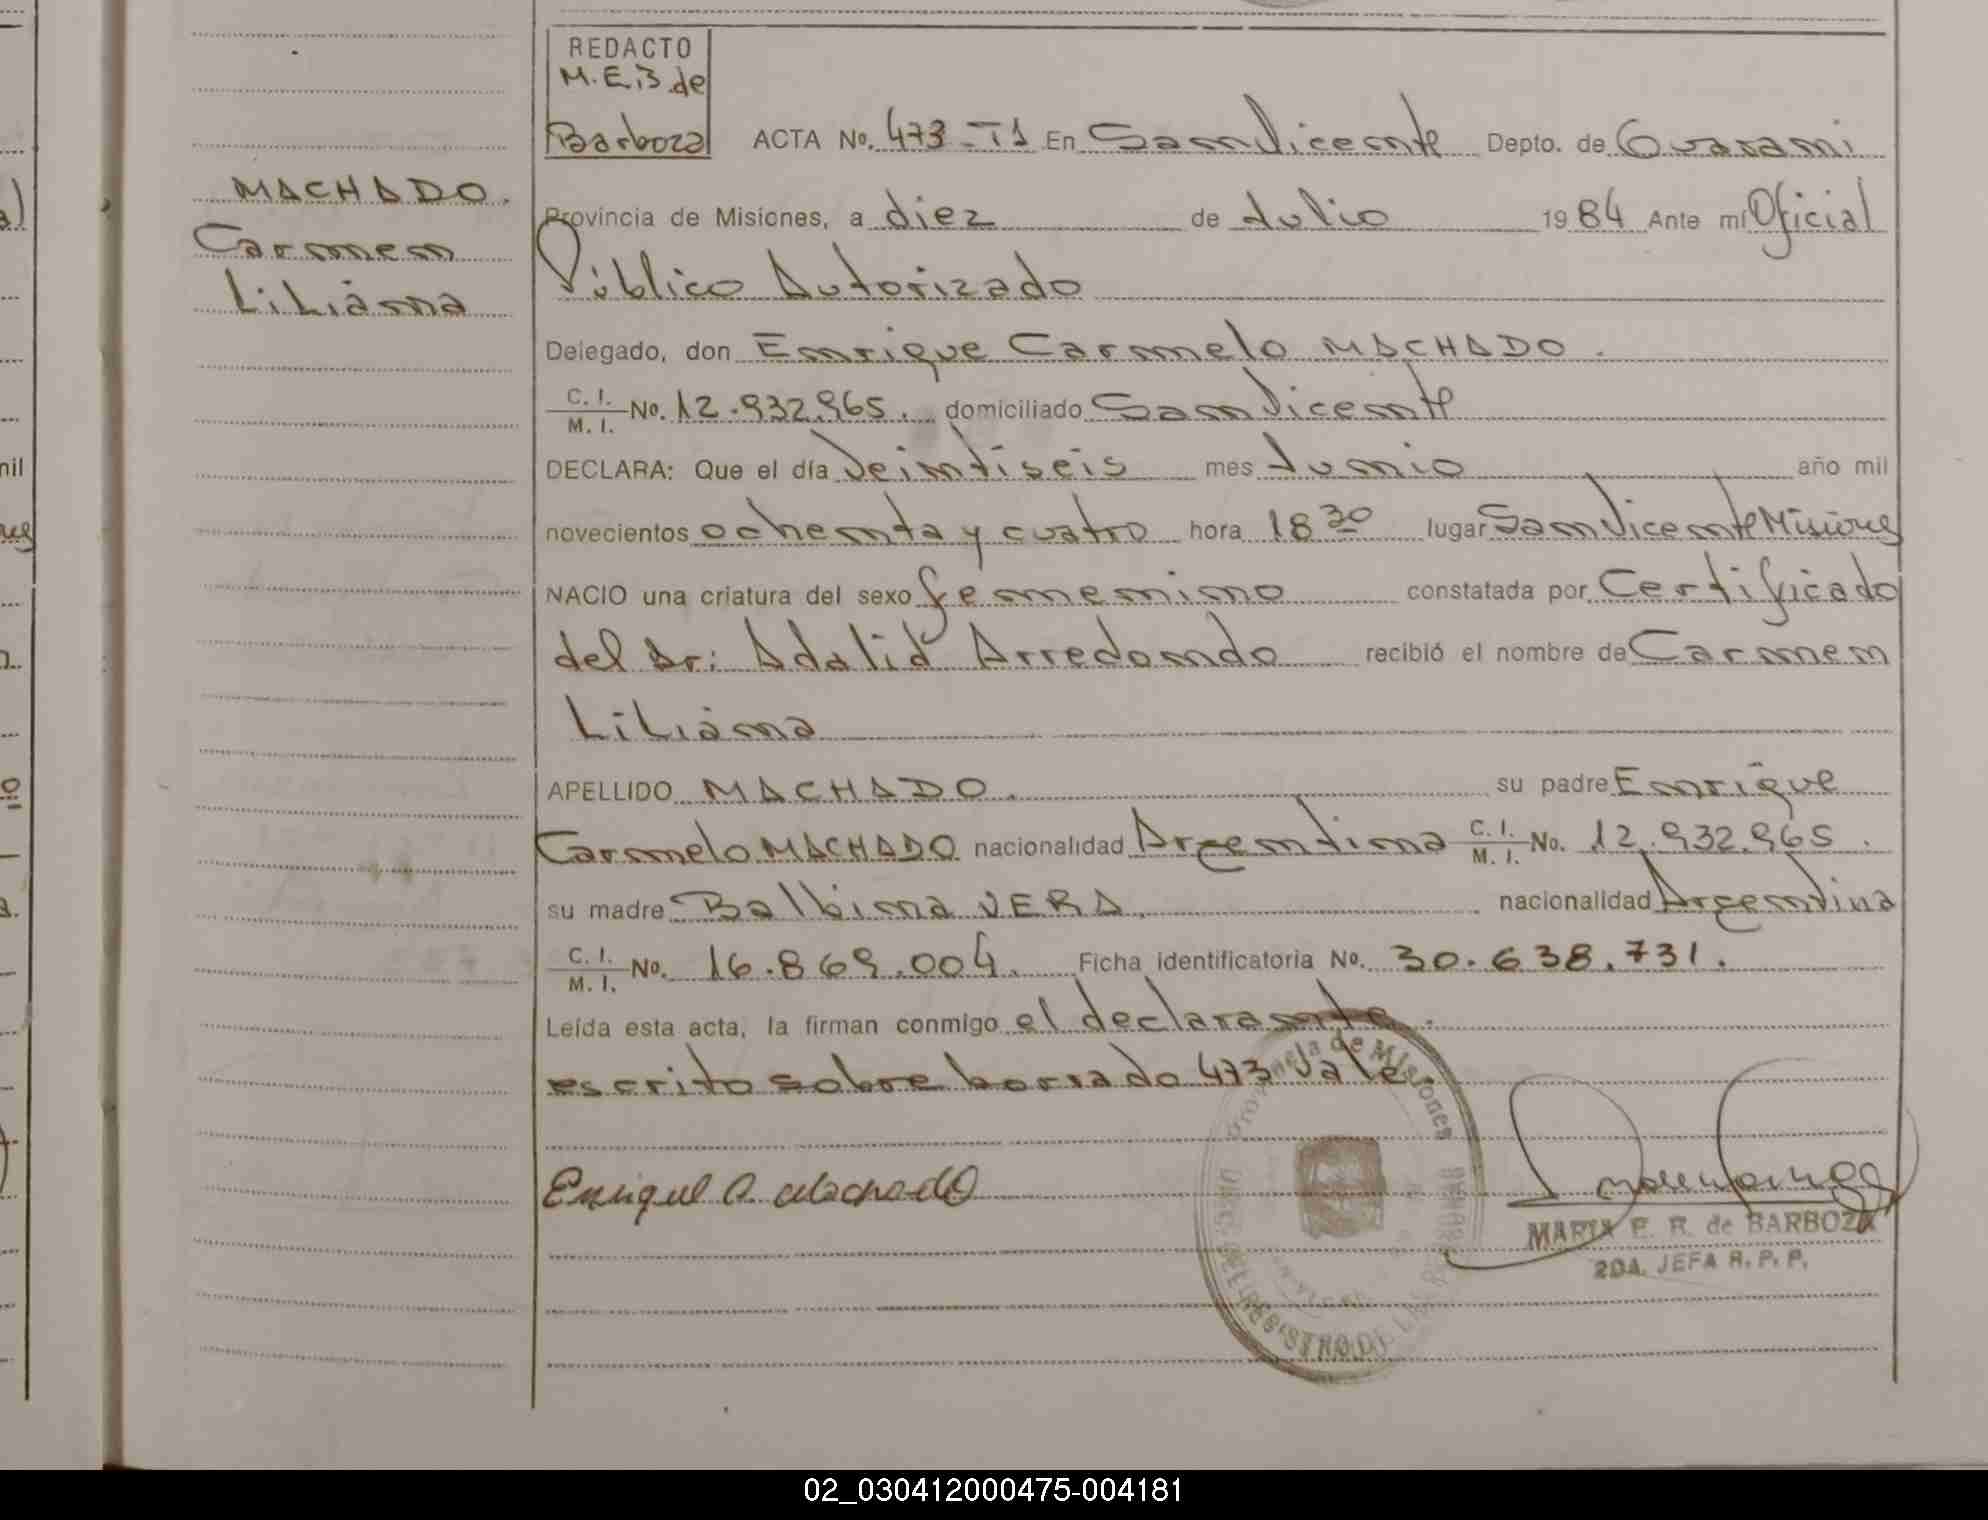 REDACTO
M.E.B de
Barboza
ACTA No. 473-T1 En San Vicente Depto. de Guarani
MACHADO.
Carmen
Liliana
Provincia de Misiones, a diez de Julio 1984 Ante mí Oficial
Público Autorizado
Delegado, don Enrique Carmelo MACHADO.
C. I. / M. I. No. 12.932.965. domiciliado San Vicente
DECLARA: Que el día Veintiseis mes Junio año mil
novecientos ochenta y cuatro hora 18 30 lugar San Vicente Misiones
NACIO una criatura del sexo femenino constatada por Certificado
del Dr: Adalid Arredondo recibió el nombre de Carmen
Liliana
APELLIDO MACHADO. su padre Enrique
Carmelo MACHADO nacionalidad Argentina C. I. / M. I. No. 12.932.965.
su madre Balbina VERA. nacionalidad Argentina
C. I. / M. I. No. 16.869.004. Ficha identificatoria No. 30.638.731.
Leída esta acta, la firman conmigo el declarante.
escrito sobre borrado 473 Vale.
Provincia de Misiones
Enrique C. Machado
MARIA E. R. de BARBOZA
2DA. JEFA R. P. P.
02_030412000475-004181